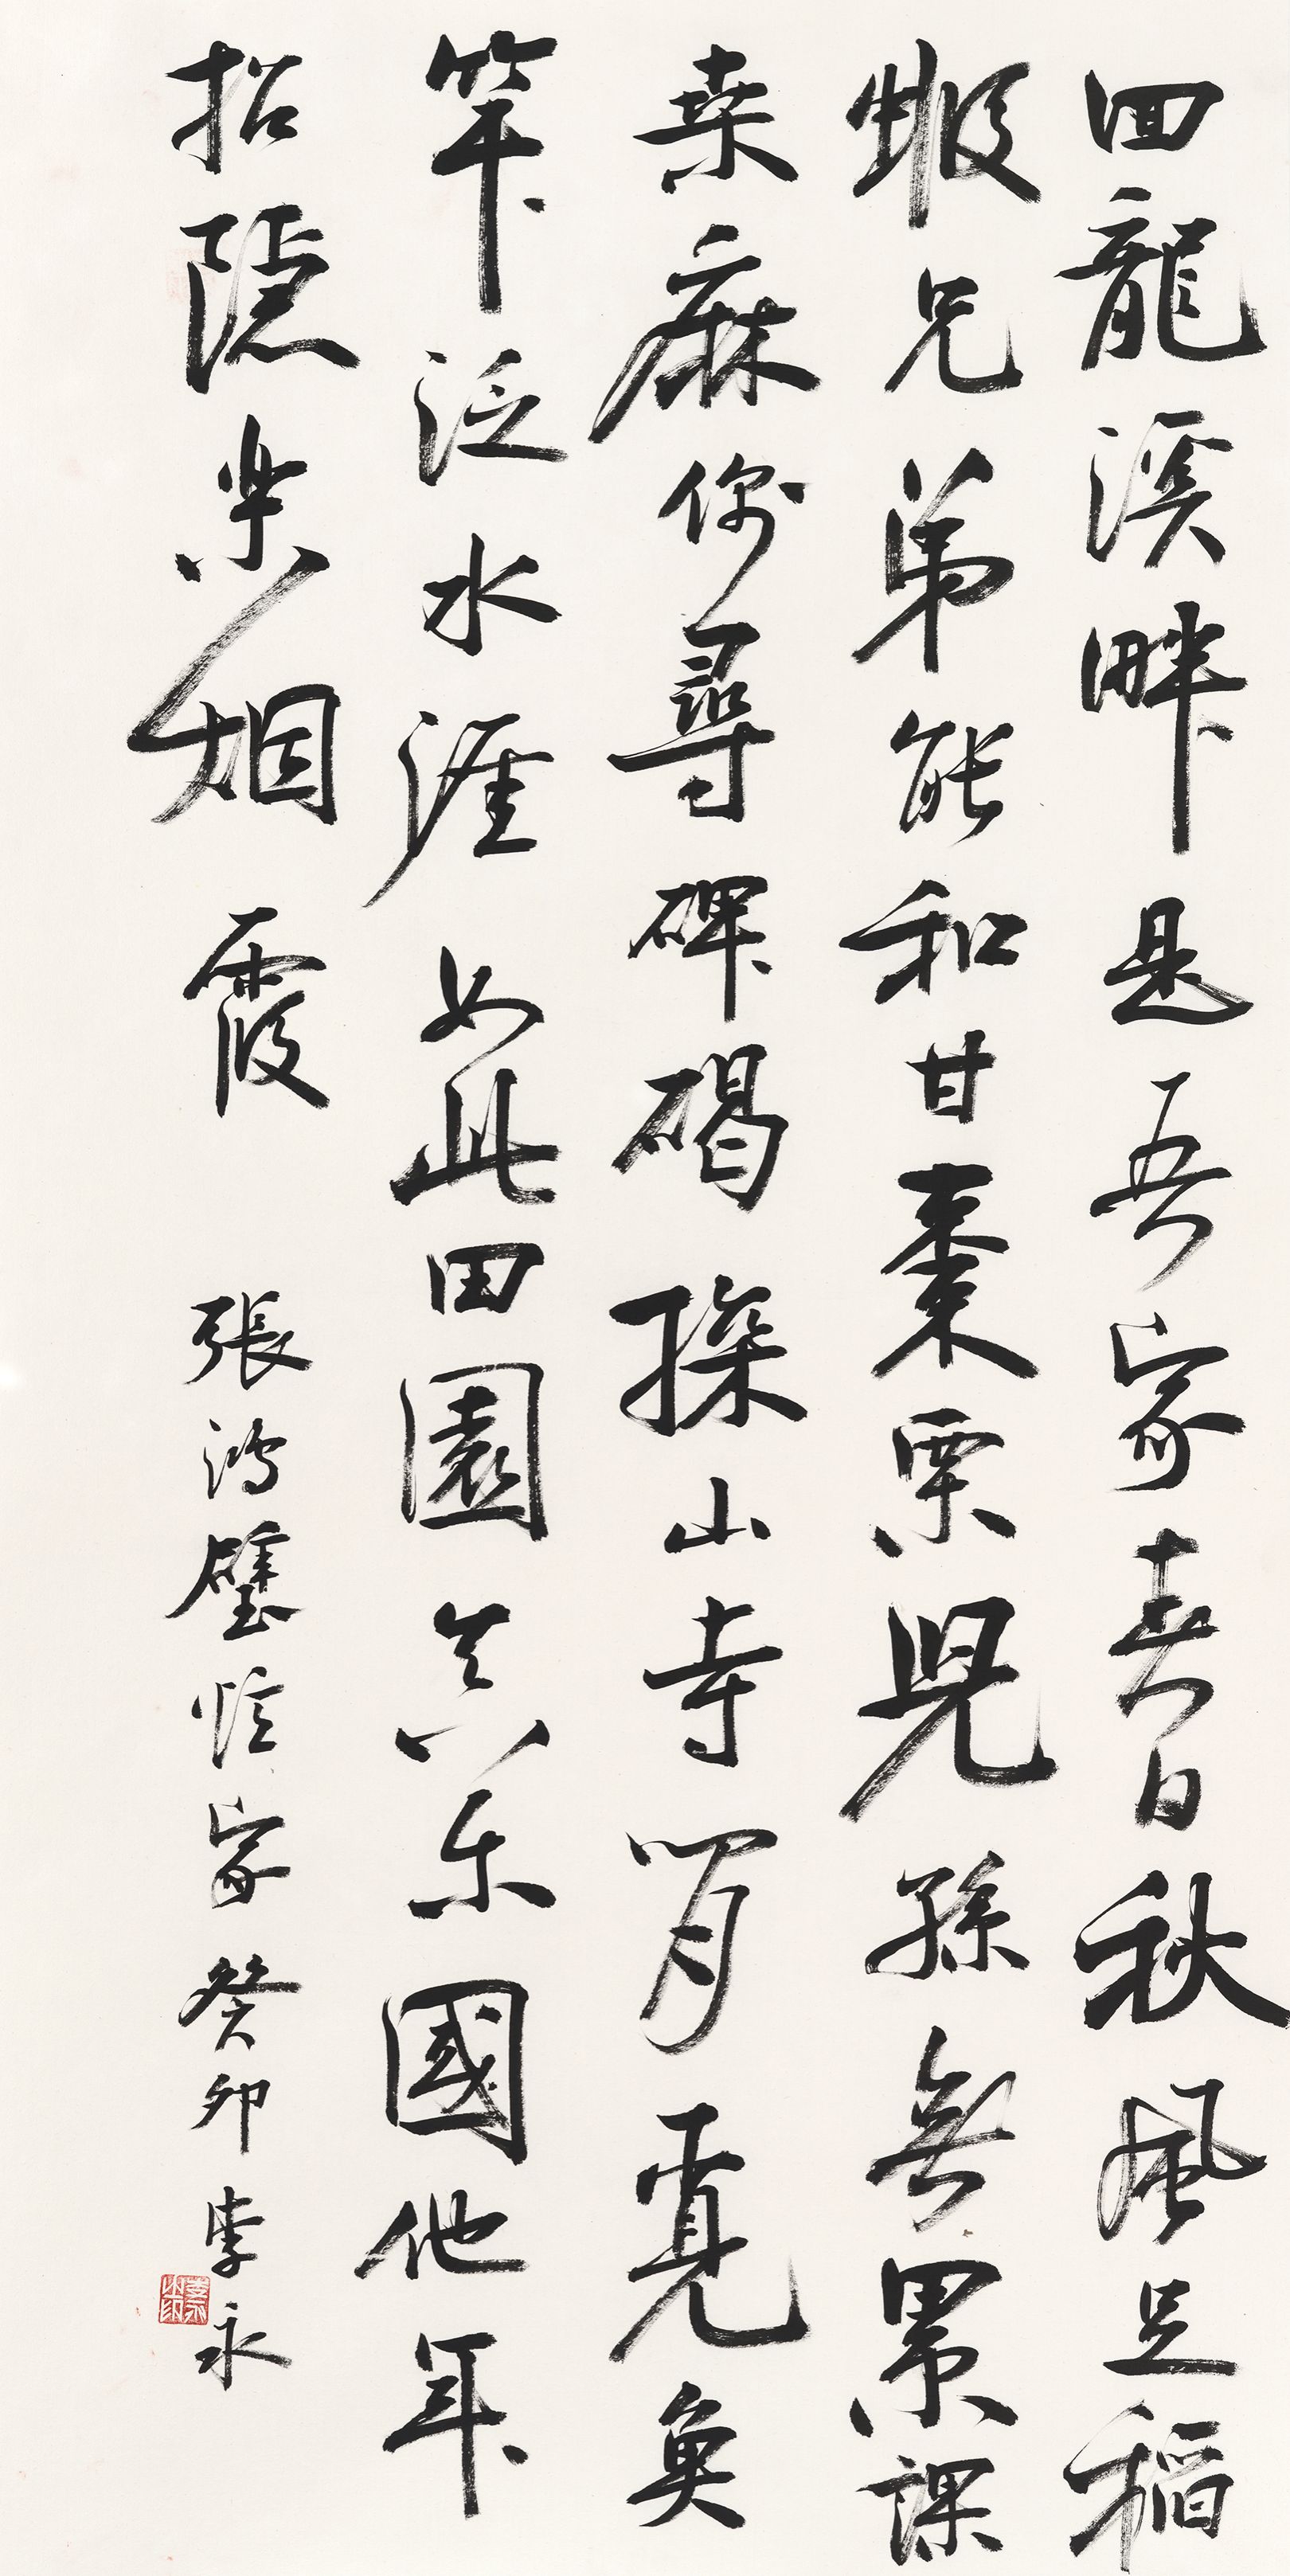 回龍溪畔是吾家春日秋風足稻
蝦兄弟能和甘棗栗兒孫無累課
桑麻偶尋碑碣探山寺閒覓魚
竿泛水涯如此田園真樂國他年
招隱樂烟霞 張鴻壁憶家 癸卯 李永